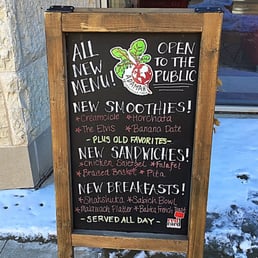 ALL NEW MENU!
OPEN TO THE PUBLIC
NEW SMOOTHIES!
*Creamcicle *Horchata
*The Elvis *Banana Date
-PLUS OLD FAVORITES-
NEW SANDWICHES!
*Chicken Snitzel *Falafel
*Braised Brisket *Pita
NEW BREAKFASTS!
*Shakshuka *Sabich Bowl
*Malawach Platter *Babka French Toast
-SERVED ALL DAY-